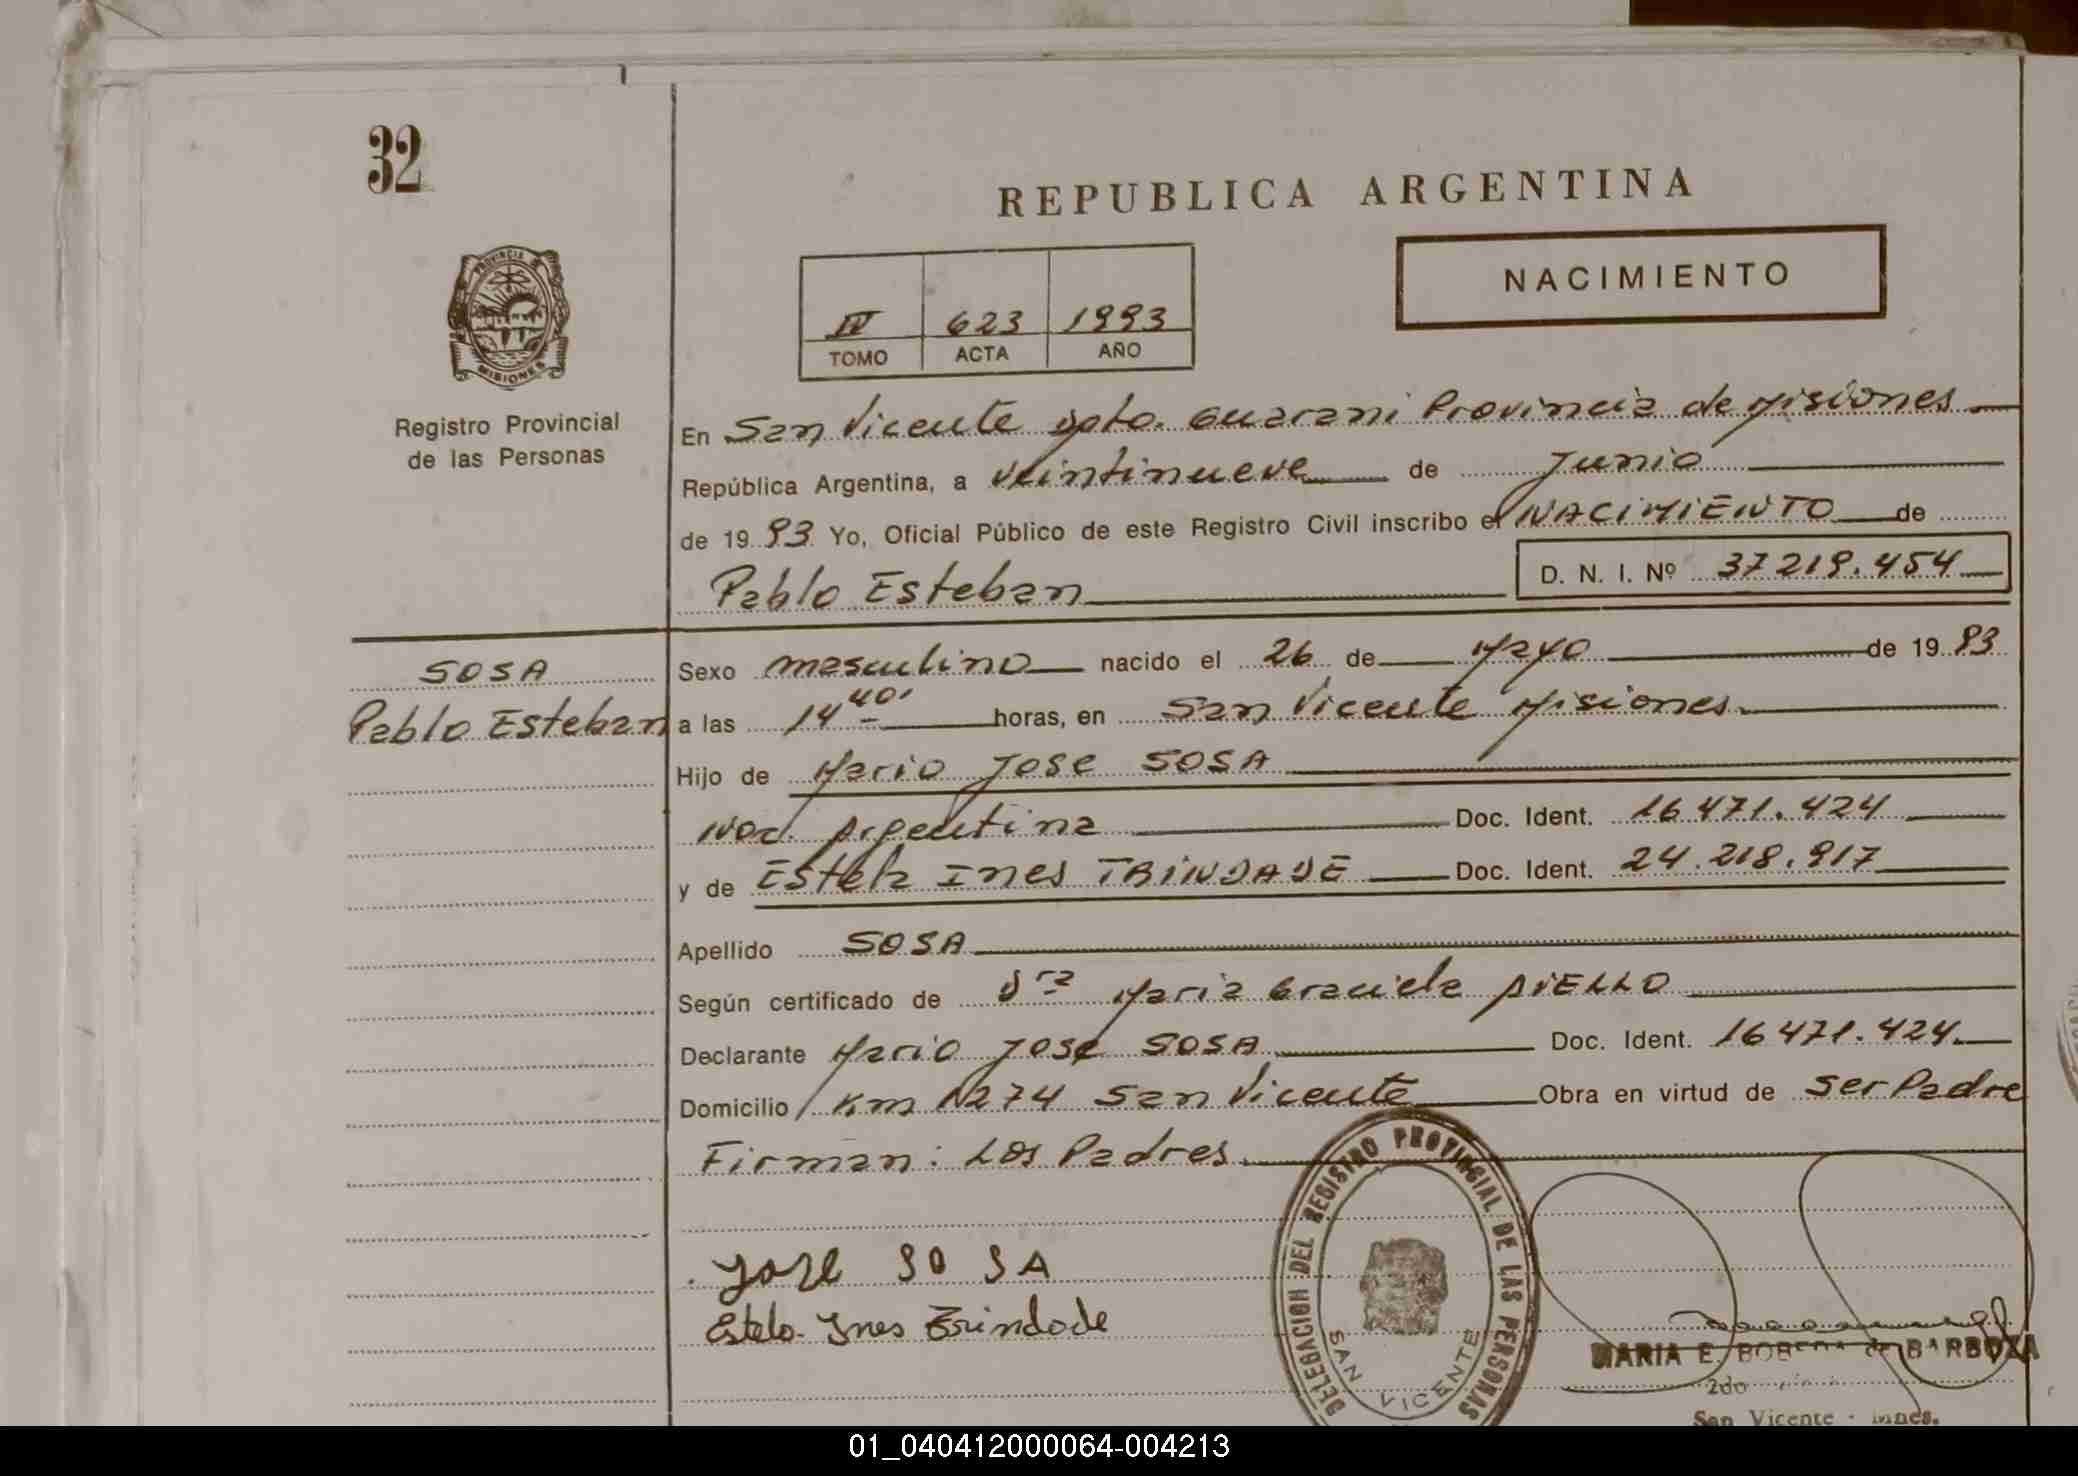 32
REPUBLICA ARGENTINA
PROVINCIA DE
MISIONES
Registro Provincial
de las Personas
IV 623 1993
TOMO ACTA AÑO
NACIMIENTO
En San Vicente Dpto. Guarani Provincia de Misiones
República Argentina, a veintinueve de Junio
de 1993 Yo, Oficial Público de este Registro Civil inscribo el NACIMIENTO de
Pablo Esteban D. N. I. Nº 37219.454
SOSA
Pablo Esteban
Sexo masculino nacido el 26 de Mayo de 1993
a las 14 40' horas, en San Vicente Misiones
Hijo de Mario Jose SOSA
Nac. Argentina Doc. Ident. 16471.424
y de Estela Ines TRINDADE Doc. Ident. 24.218.917
Apellido SOSA
Según certificado de Dra Maria Graciela AIELLO
Declarante Mario Jose SOSA Doc. Ident. 16471.424
Domicilio Km 1274 San Vicente Obra en virtud de ser Padre
Firman: Los Padres
Jose SOSA
Estela Ynes Trindade
DELEGACION DEL REGISTRO PROVINCIAL DE LAS PERSONAS
SAN VICENTE
MARIA E. de BARBOZA
2do
San Vicente - Mnes.
01_040412000064-004213